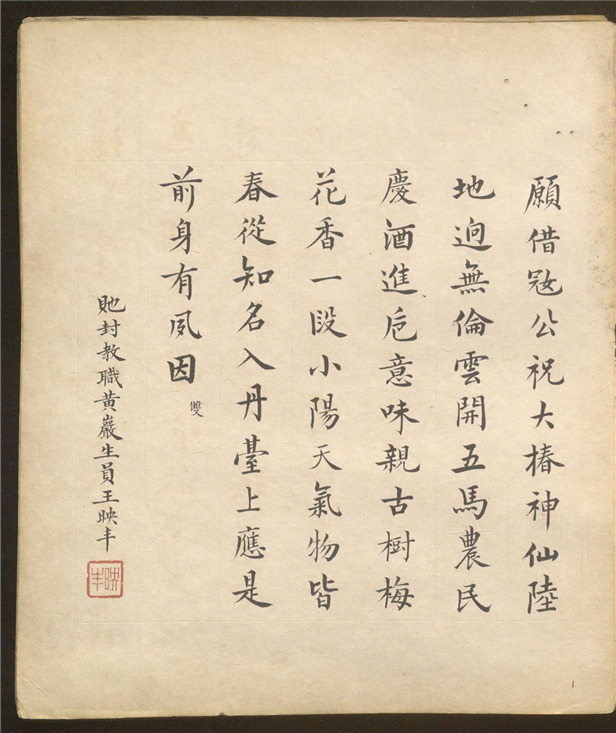 願借冦公祝大椿神仙陸
地逈無倫雲開五馬農民
慶酒進巵意味親古樹梅
花香一段小陽天氣物皆
春從知名入丹臺上應是
前身有夙因 雙
貤封教職黃巖生員王映丰
映丰